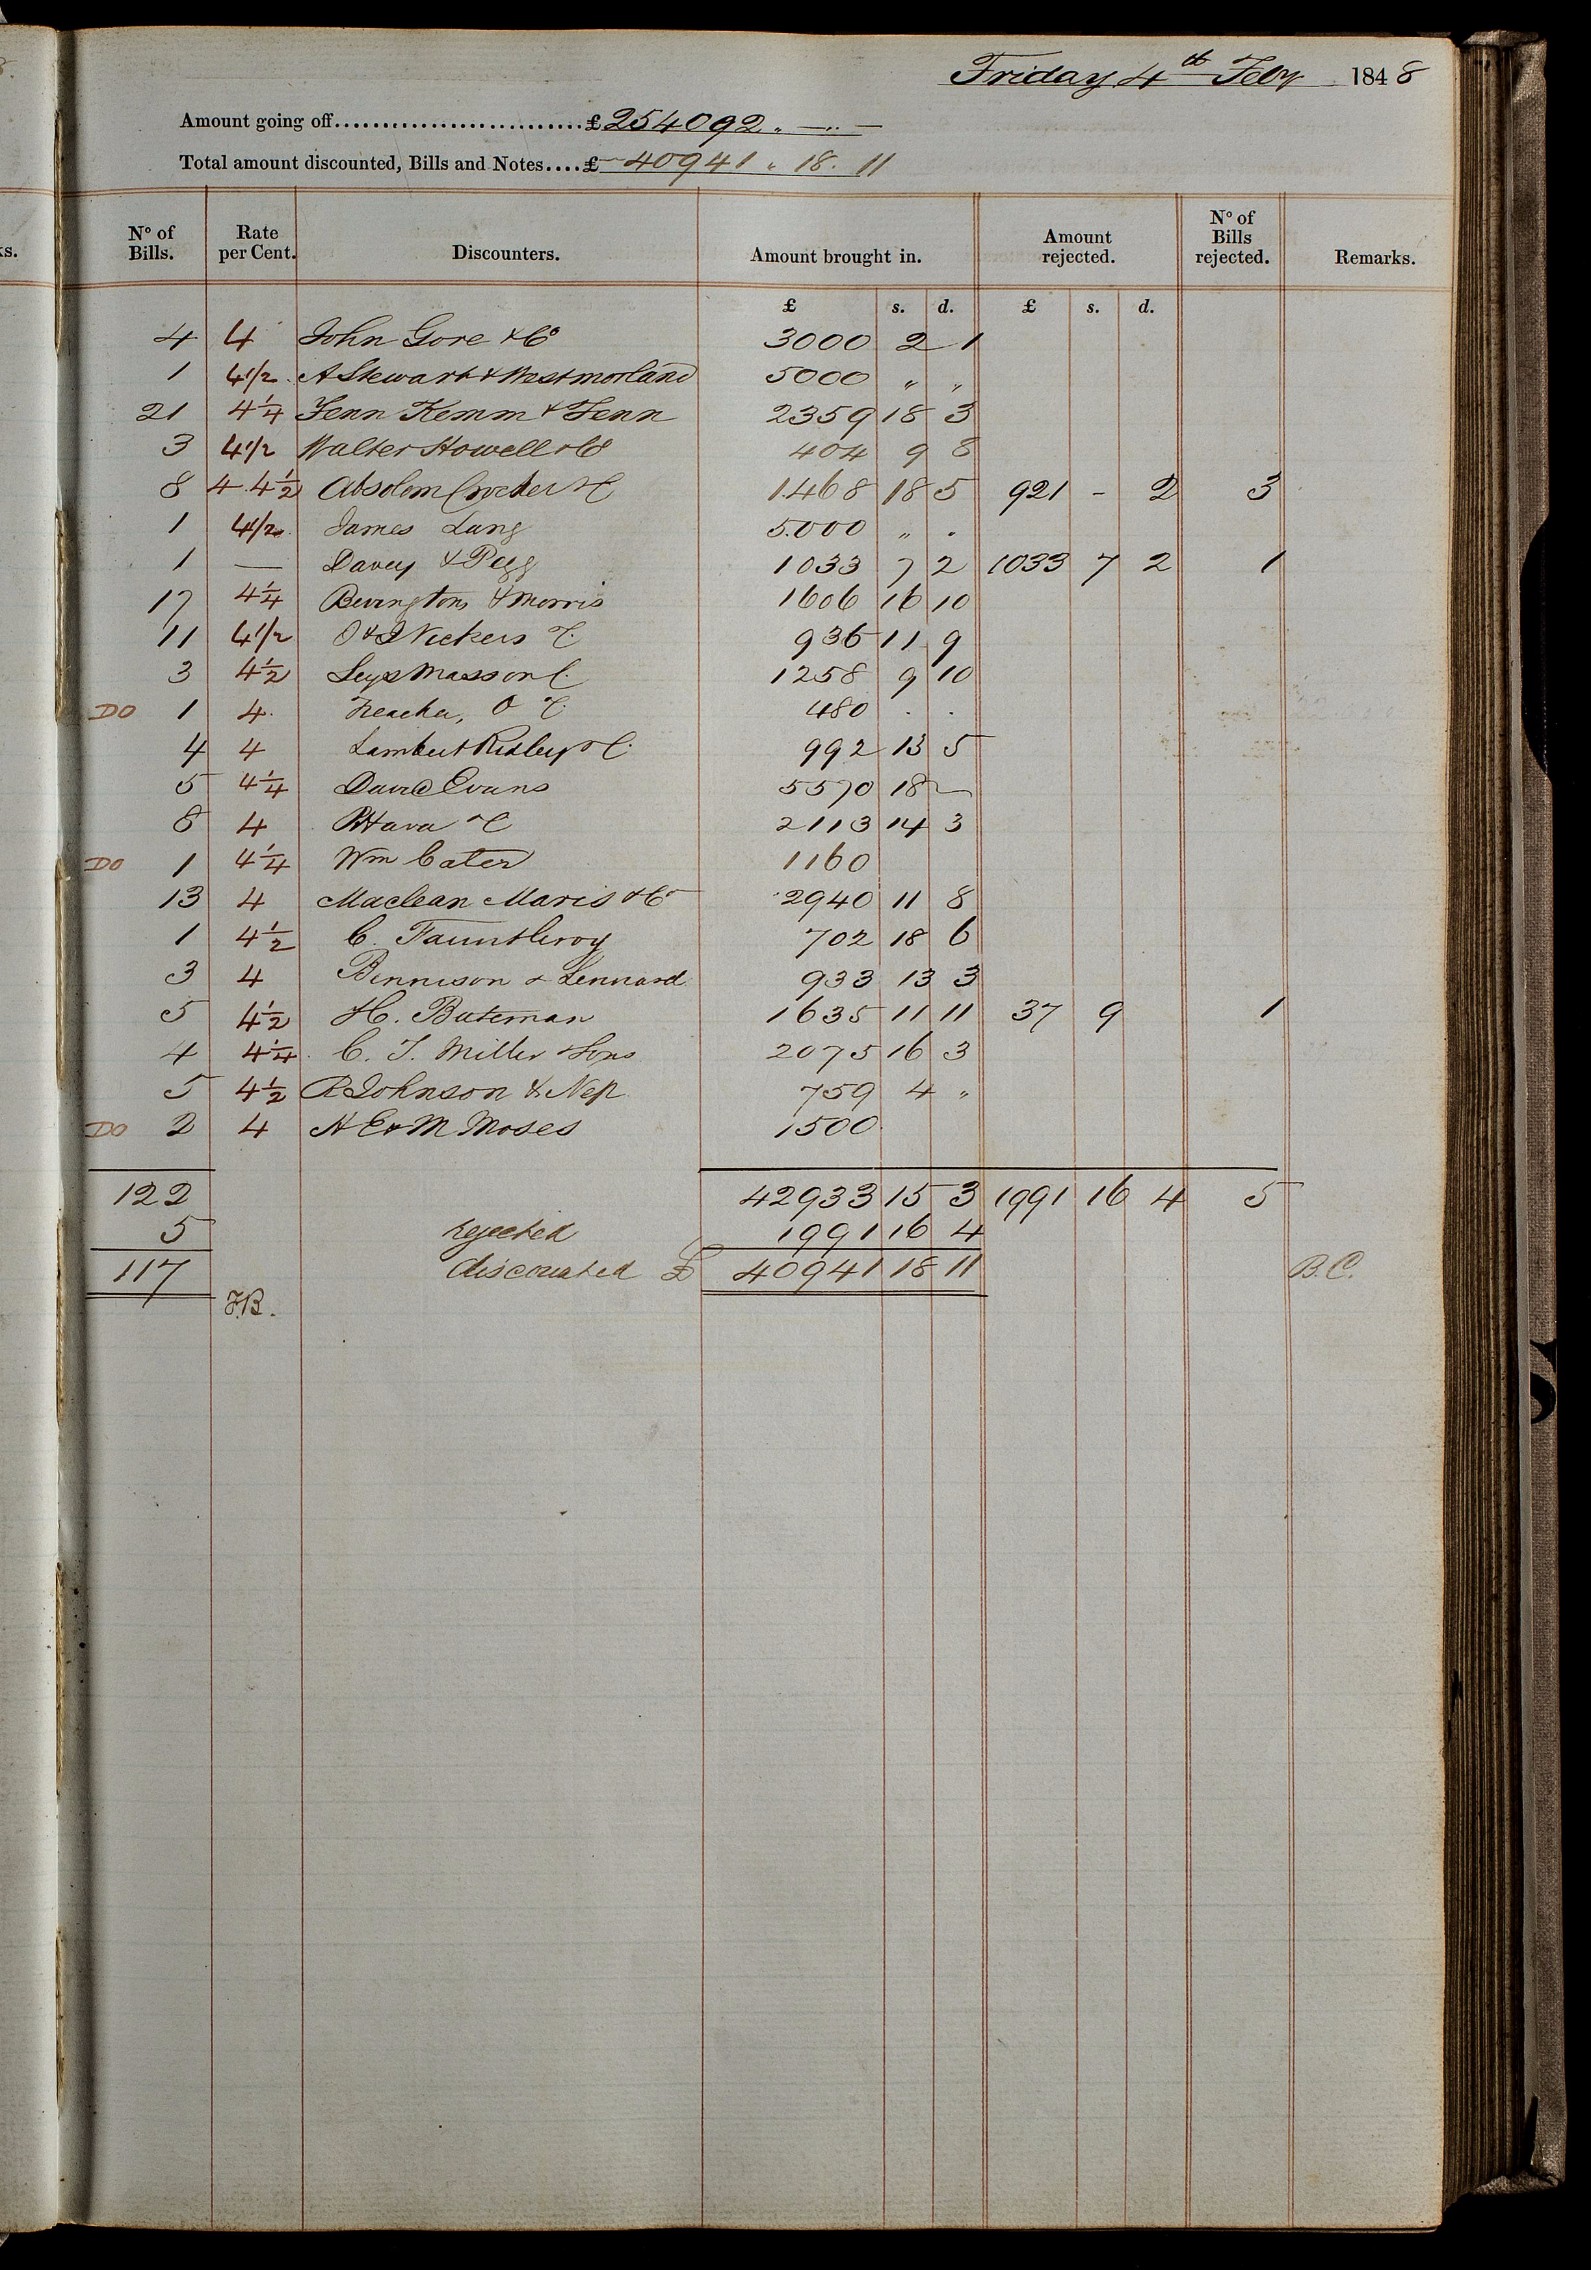 Friday 4th Feby 1848
Amount going off...........................£ 254092 " — " —
Total amount discounted, Bills and Notes....£ 40941 " 18 . 11
ks. No of Bills. Rate per Cent. Discounters. Amount brought in. Amount rejected. No of Bills rejected. Remarks.
£ s. d. £ s. d.
4 4 John Gore & Co 3000 2 1
1 4 1/2 A Stewart & Westmorland 5000 " "
21 4 1/4 Fenn Kemm & Fenn 2359 18 3
3 4 1/2 Walter Howell & Co 404 9 8
8 4 . 4 1/2 Absolom Crocker & C 1468 18 5 921 - 2 3
1 4 1/2 James Lang 5.000 " "
1 — Davey & Pegg 1033 7 2 1033 7 2 1
17 4 1/4 Bevingtons & Morris 1606 16 10
11 4 1/2 Vickers & C. 936 11 9
3 4 1/2 Leys Masson C. 1258 9 10
DO 1 4 480 . .
4 4 Lambert Ridley & C. 992 13 5
5 4 1/4 David Evans 5570 18 —
8 4 & C 2113 14 3
DO 1 4 1/4 Wm Cater 1160
13 4 Maclean Maris & Co 2940 11 8
1 4 1/2 C. Fauntleroy 702 18 6
3 4 Bennison & Lennard 933 13 3
5 4 1/2 H. Bateman 1635 11 11 37 9 1
4 4 1/4 C. T. Miller & Sons 2075 16 3
5 4 1/2 R Johnson & Nep 759 4 "
DO 2 4 H E & M Moses 1500
122 42933 15 3 1991 16 4 5
5 rejected 1991 16 4
117 discounted £ 40941 18 11 B.C.
J.B.